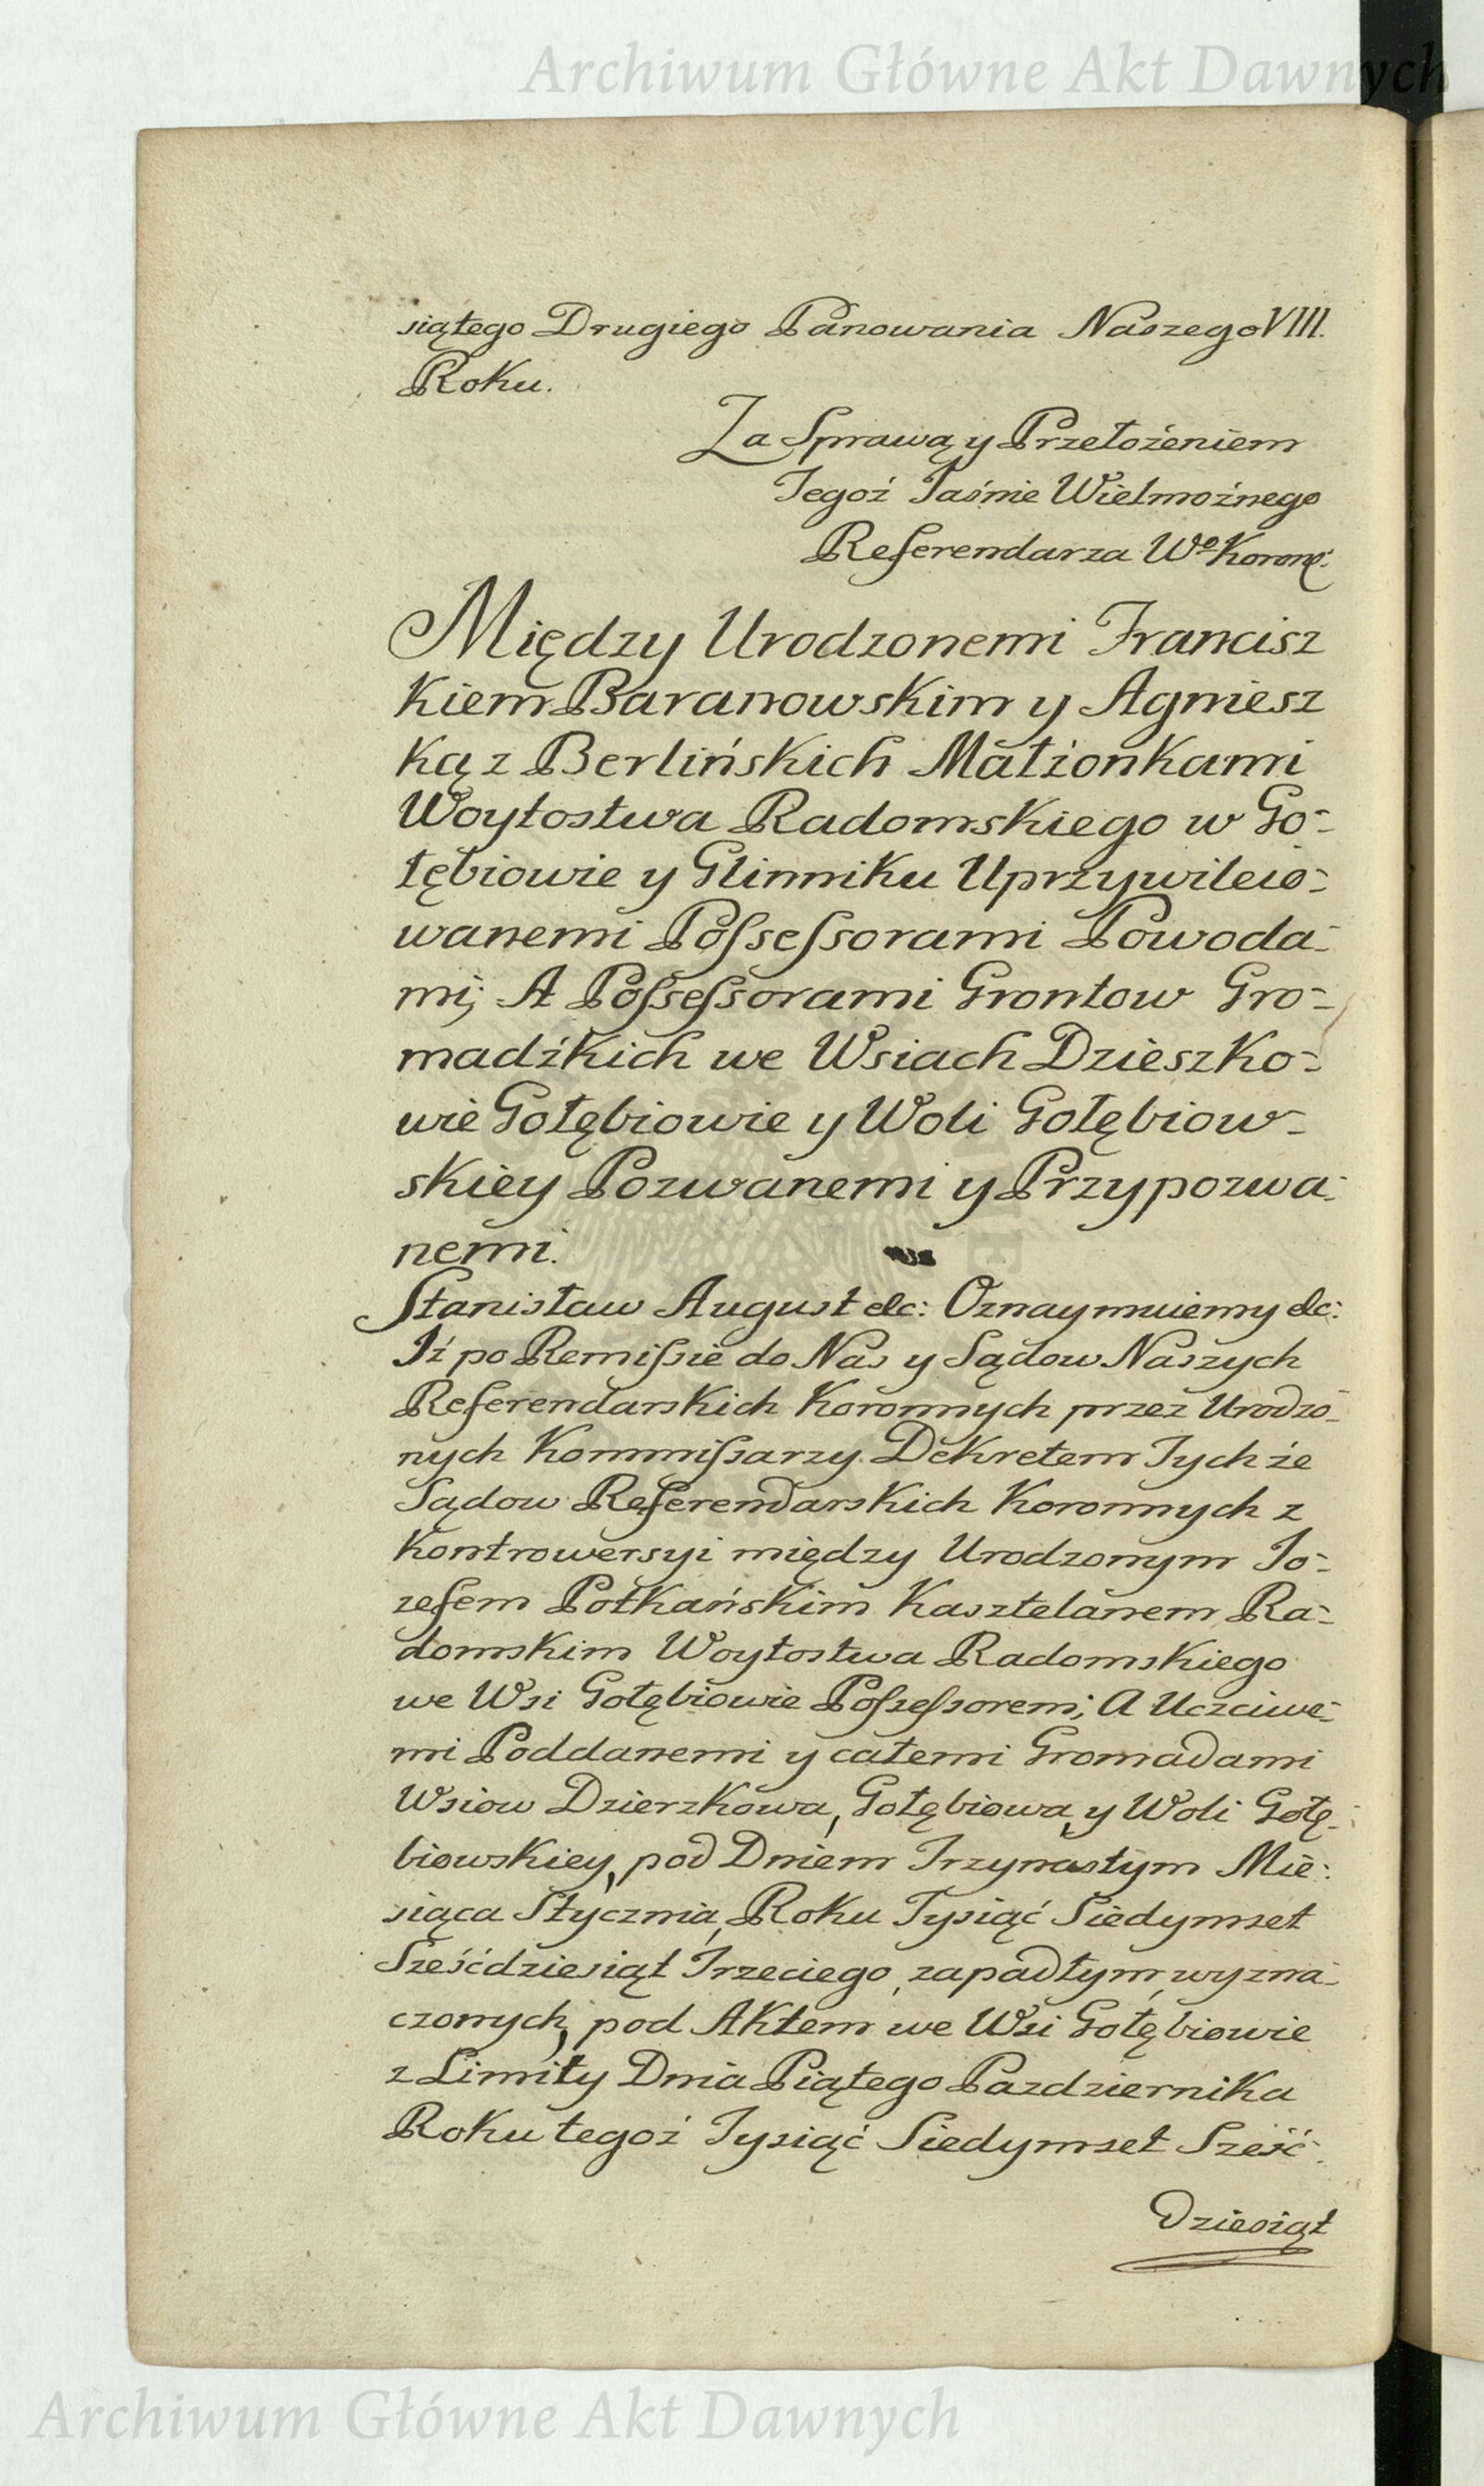 Archiwum Główne Akt Dawnych
siątego Drugiego Panowania Naszego VIII.
Roku.
Za Sprawą y Przełożeniem
Tegoż Jaśnie Wielmożnego
Referendarza Wo Koronę:
Między Urodzonemi Francisz
kiem Baranowskim y Agniesz
ką z Berlińskich Małżonkami
Woytostwa Radomskiego w Go-
łębiowie y Glinniku Uprzywileio-
wanemi Possessorami Powoda-
mi; A Possessorami Grontow Gro-
madźkich we Wsiach Dzieszko-
wie Gołębiowie y Woli Gołębiow-
skiey Pozwanemi y Przypozwa-
nemi.
Stanisław August etc: Oznaymuiemy etc:
Iż po Remissie do Nas y Sądow Naszych
Referendarskich Koronnych przez Urodzo-
nych Kommissarzy Dekretem Tychże
Sądow Referendarskich Koronnych z
Kontrowersyi między Urodzonym Jo-
zefem Potkańskim Kasztelanem Ra-
domskim Woytostwa Radomskiego
we Wsi Gołębiowie Possessorem; A Uczciwe-
mi Poddanemi y całemi Gromadami
Wsiow Dzierzkowa, Gołębiowa, y Woli Gołę-
biowskiey, pod Dniem Trzynastym Mie-
siąca Stycznia, Roku Tysiąć Siedymset
Sześćdziesiąt Trzeciego, zapadłym, wyzna-
czonych, pod Aktem we Wsi Gołębiowie
z Limity Dnia Piątego Pazdziernika
Roku tegoż Tysiąć Siedymset Sześć-
Dziesiąt
Archiwum Główne Akt Dawnych